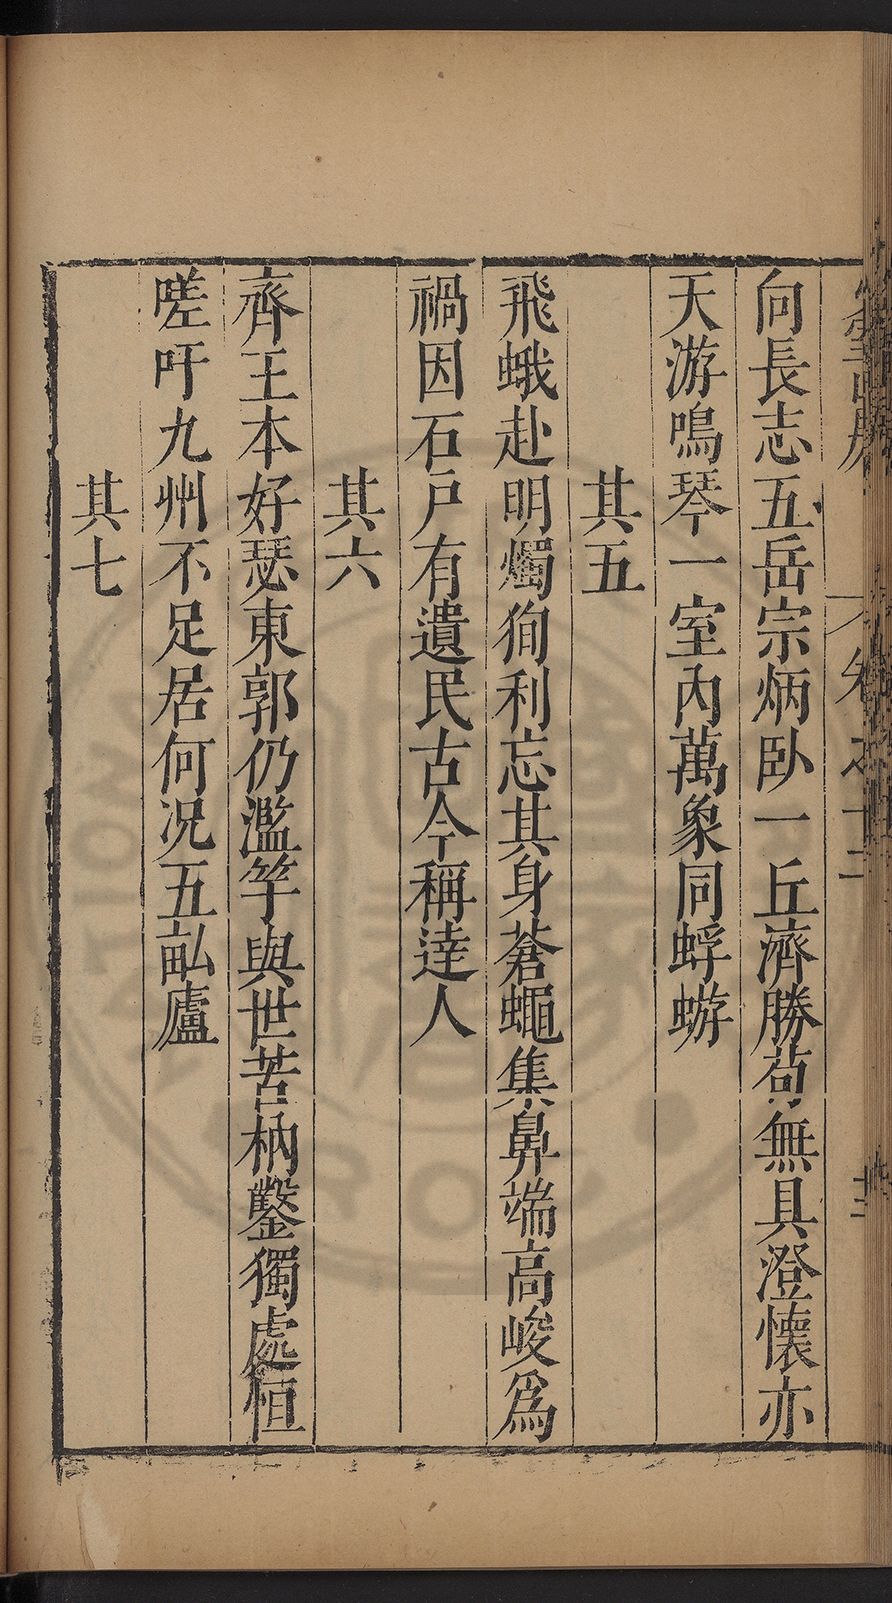 向長志五岳宗炳卧一丘濟勝茍無具澄懷亦
天游鳴琴一室內萬象同蜉蝣
其五
飛蛾赴明燭狥利忘其身蒼蠅集鼻端高峻爲
禍因石戸有遺民古今稱達人
其六
齊王本好瑟東郭仍濫竽與世苦枘鑿獨處恒
嗟吁九州不足居何況五畝廬
其七